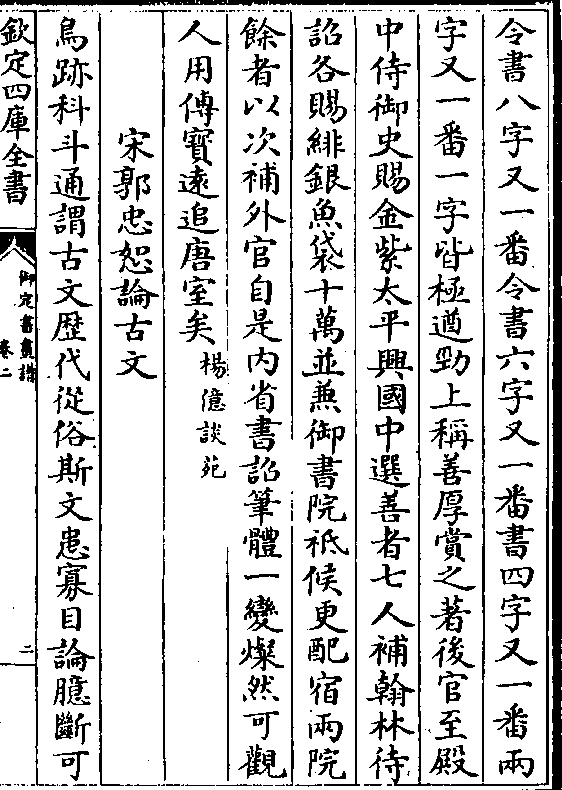 令書八字又一番令書六字又一番書四字又一番兩
字又一番一字皆極遒勁上稱善厚賞之著後官至殿
中侍御史賜金紫太平興國中選善者七人補翰林待
詔各賜緋銀魚袋十萬並兼御書院祗候更配宿兩院
餘者以次補外官自是内省書詔筆體一變燦然可觀
人用傳寳遠追唐室矣楊億談苑
宋郭忠恕論古文
鳥跡科斗通謂古文歴代從俗斯文患寡目論臆斷可
欽定四庫全書
御定書畫譜
卷二
二